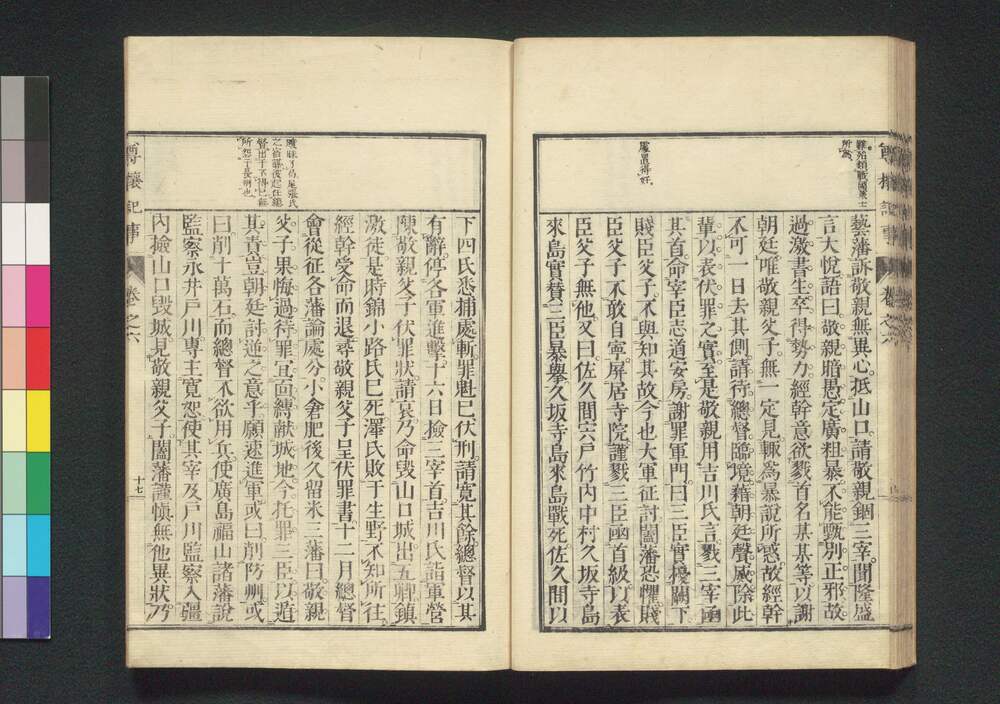 藝藩訴敬親無異心。抵山口。請敬親錮三宰。聞隆盛
言大悅。語曰敬親暗愚。定廣粗暴。不能甄別正邪。故
過激書生。卒得勢力。經幹意欲戮首名某某等。以謝
朝廷。唯敬親父子。無一定見。輒爲暴說所惑。故經幹
不可一日去其側。請待總督臨境。藉朝廷聲威。除此
輩。以表伏罪之實。至是敬親用吉川氏言。戮三宰。函
其首。命宰臣志道安房。謝罪軍門。曰三臣實擾闕下。
賤臣父子。不與知其故。今也大軍征討。闔藩恐懼。賤
臣父子不敢自寧。屏居寺院。謹戮三臣。函首級。以表
臣父子無他。又曰。佐久間宍戶竹內中村久坂寺島
來島實贊三臣暴擧。久坂寺島來島戰死。佐久間以
所爲。
處置得好。
下四氏悉捕處斬。罪魁已伏刑。請寬其餘。總督以其
有辭。停各軍進擊。十六日檢三宰首。吉川氏詣軍營
陳敬親父子伏罪狀。請哀。乃命毀山口城。出五卿。鎮
激徒。是時錦小路氏已死。澤氏敗于生野。不知所往。
經幹受命而退。尋敬親父子呈伏罪書。十二月總督
會從征各藩論處分。小倉肥後久留米三藩曰。敬親
父子果悔過待罪。宜面縛献城地。今托罪三臣。以逭
其責。豈朝廷討逆之意乎。願速進軍。或曰。削防州。或
曰。削十萬石。而總督不欲用兵。使廣島福山諸藩說
監察永井戶川。專主寬恕。使其宰及戶川監察入疆
內。撿山口毀城。見敬親父子。闔藩謹愼無他異狀。乃
尊攘記事
卷之六
十七